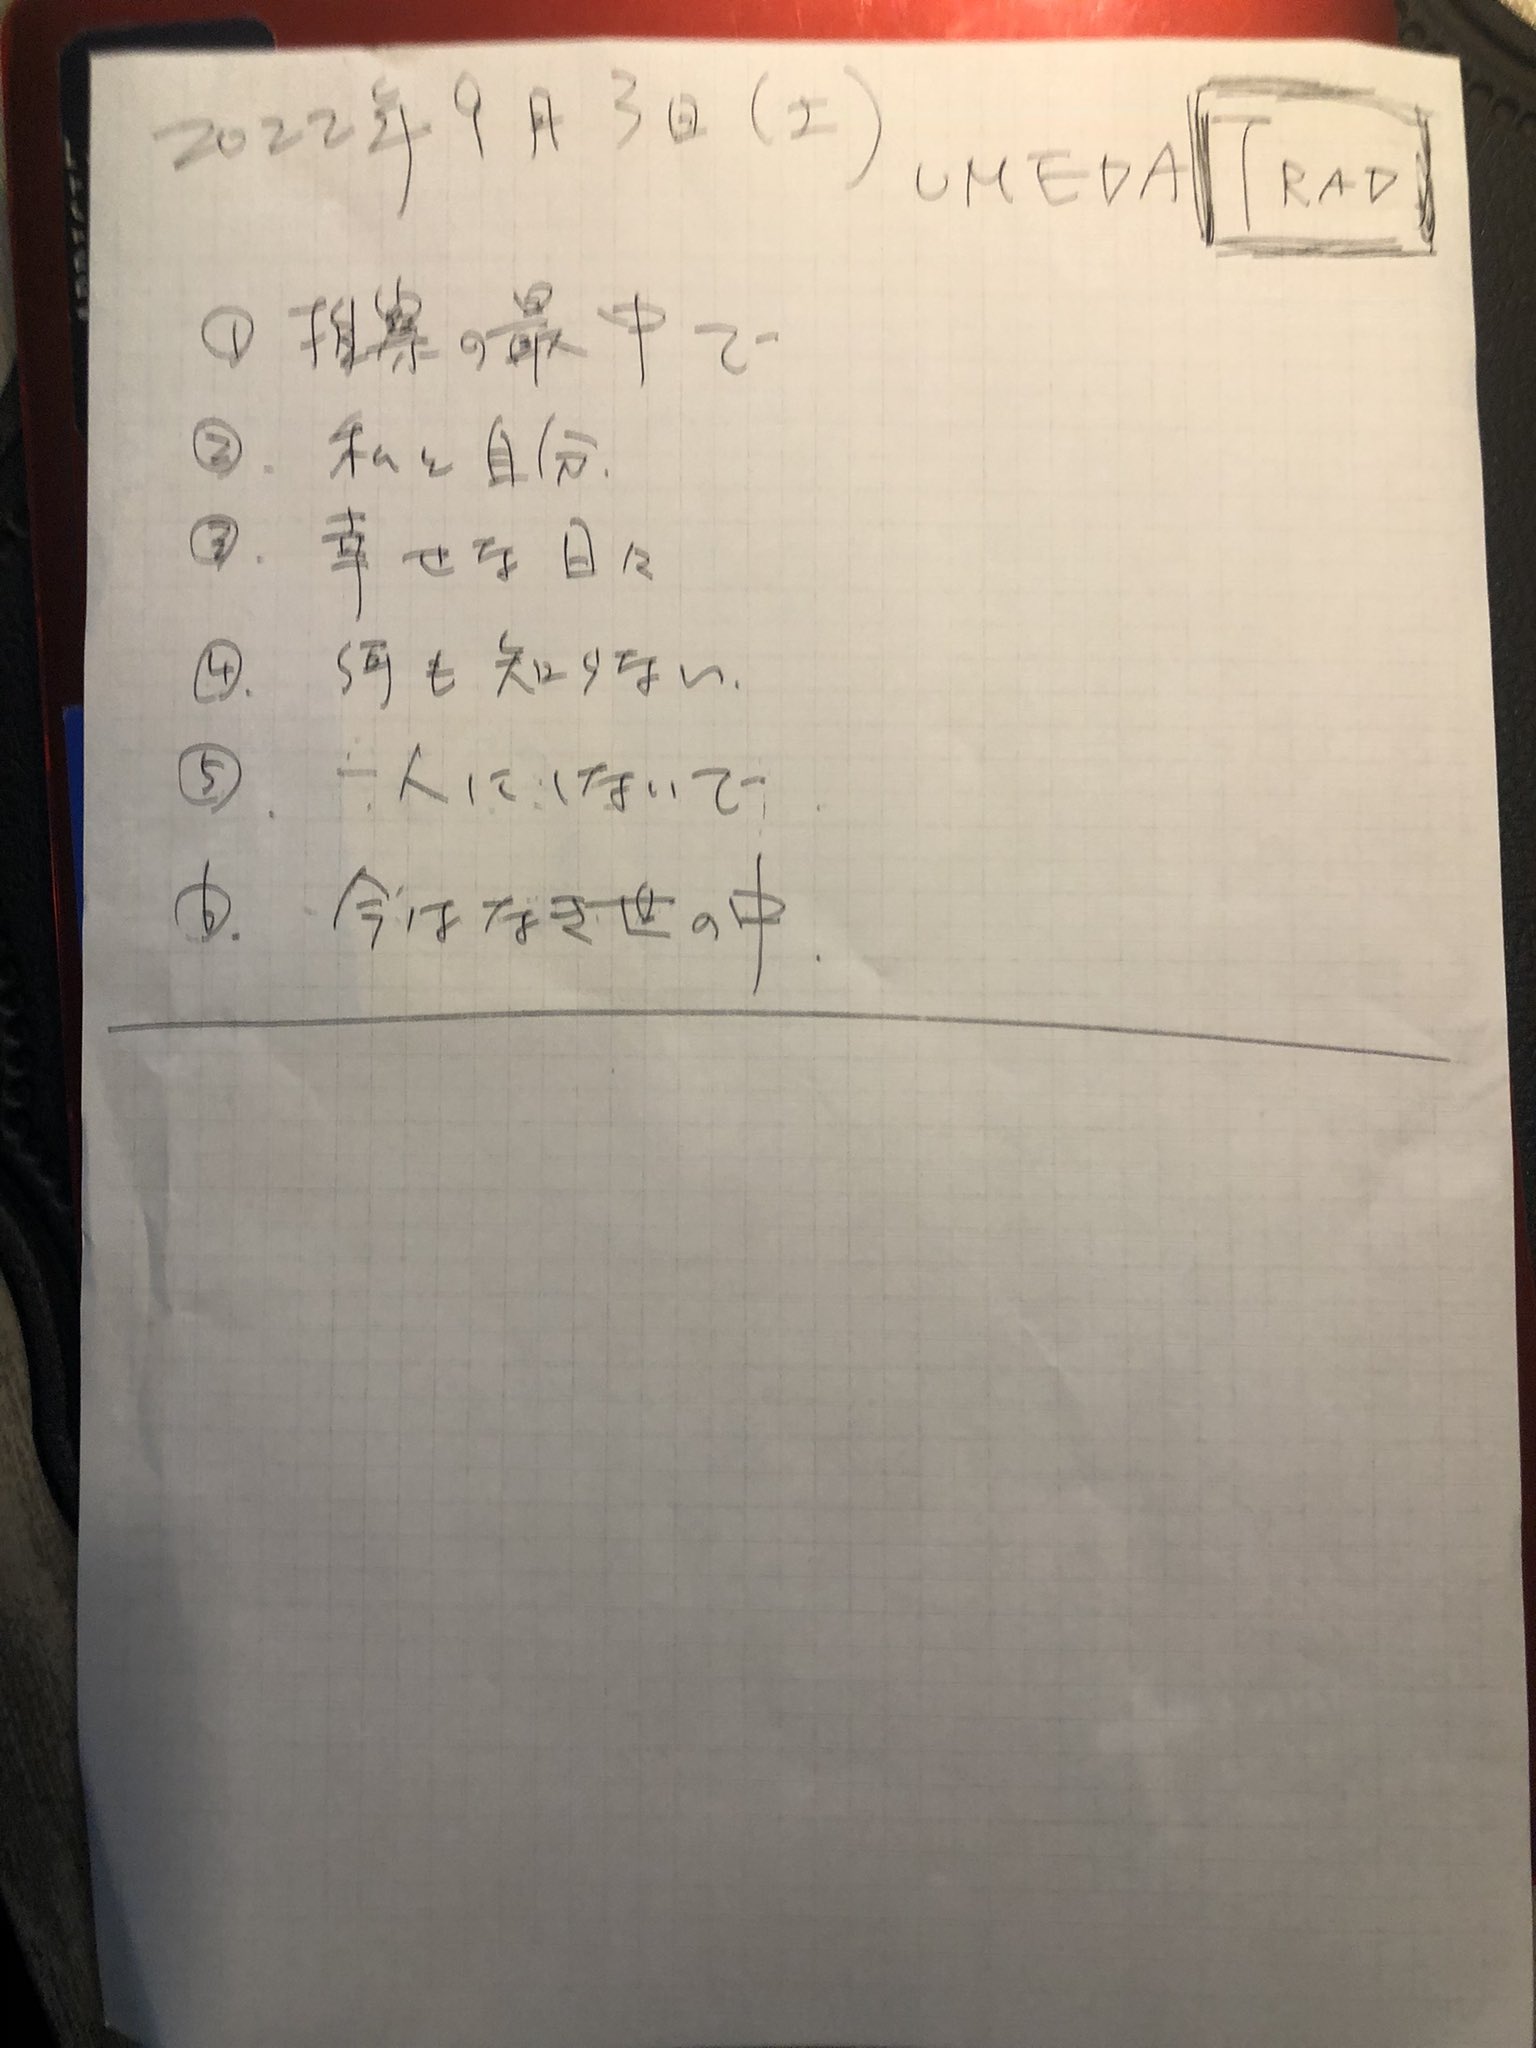 2022年9月3日(土) UMEDA TRAD
① 推察の最中で
②. 私と自分.
③. 幸せな日々
④. 何も知らない.
⑤. 一人にしないで.
⑥. 今はなき世の中.